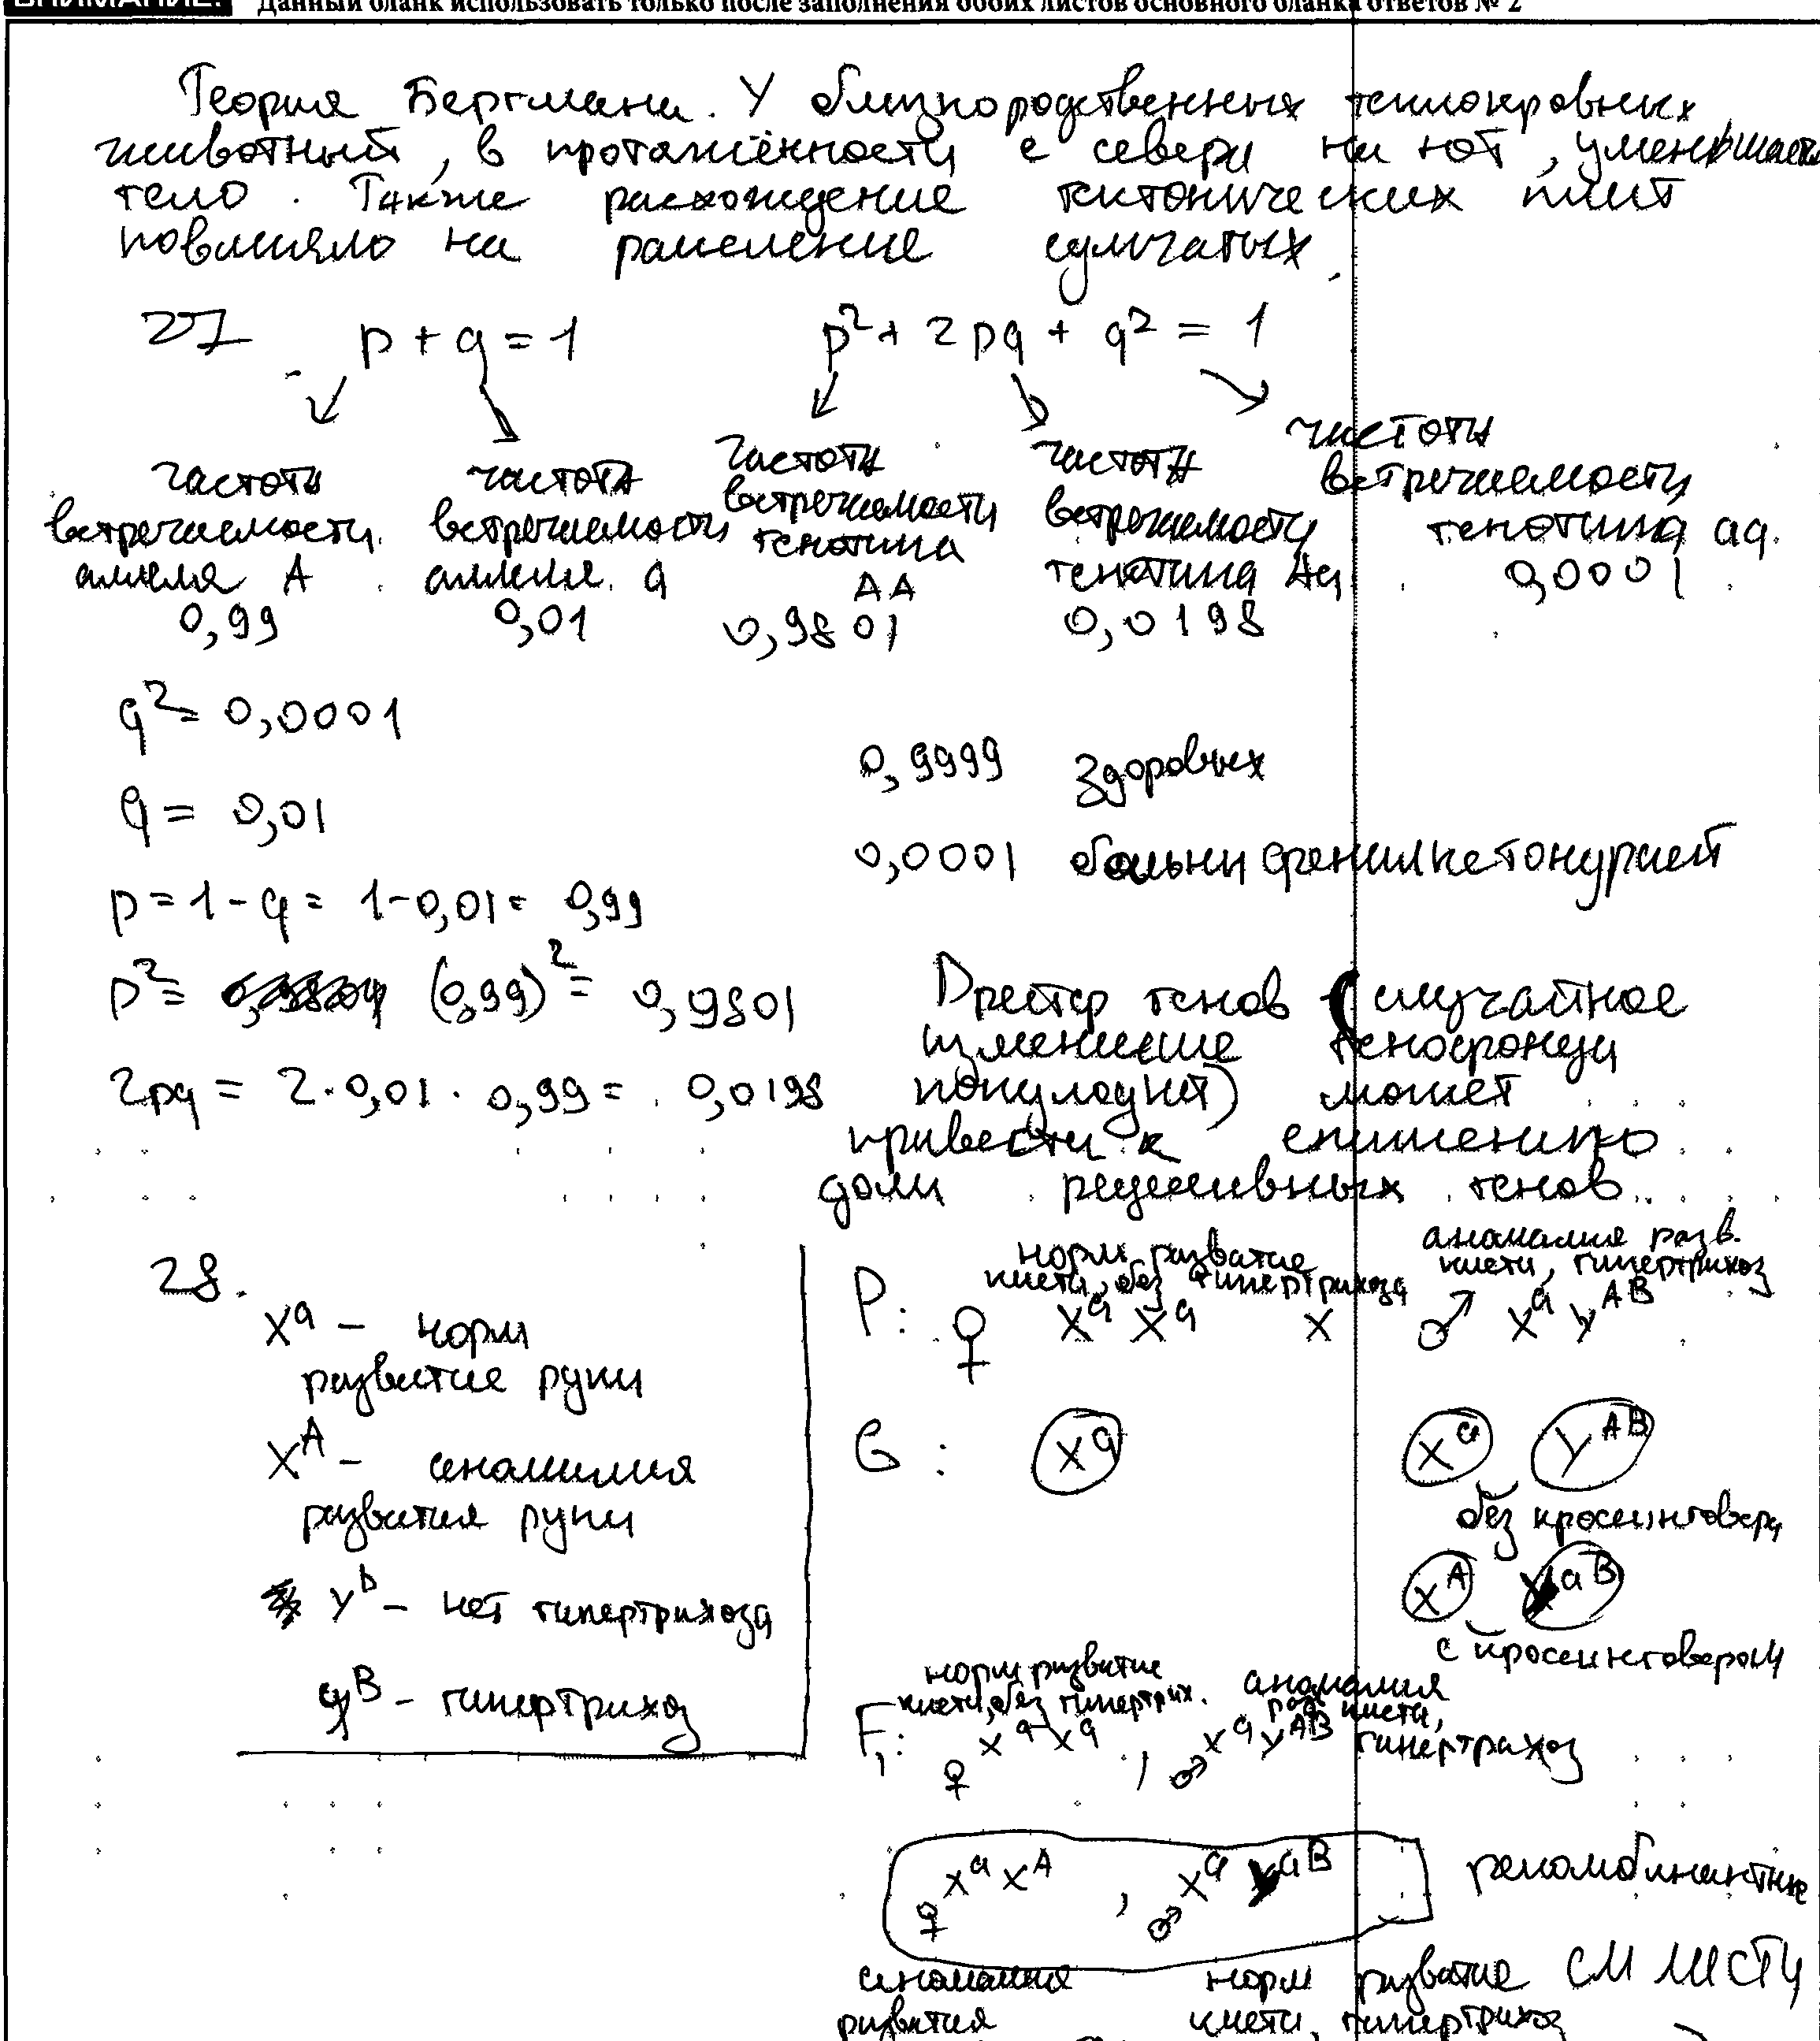 ВНИМАНИЕ! Данный бланк использовать только после заполнения обоих листов основного бланка ответов № 2
Теория Бергмана. У близкородственных теплокровных
животный, в протяжённости с севера на юг, уменьшается
тело. Также расхождение тектонических плит
повлияло на раселение сумчатых.
27 p + q = 1 p² + 2pq + q² = 1
частота встречаемости аллеля А 0,99
частота встречаемости аллеля. а 0,01
частота встречаемости генотипа АА 0,9801
частота встречаемости генотипа Аа 0,0198
частота встречаемости генотипа аа. 0,0001
q² = 0,0001
q = 0,01
p = 1 - q = 1 - 0,01 = 0,99
p² = (0,99)² = 0,9801
2pq = 2 · 0,01 · 0,99 = 0,0198
0,9999 здоровых
0,0001 больны фенилкетонурией
Дрейф генов (случайное
изменение генофонда
популяций) может
привести к снижению
доли рецесивных генов.
28.
Xᵃ - норм
развитие руки
Xᴬ - аномалия
развития руки
Yᵇ - нет гипертрихоза
Yᴮ - гипертрихоз
норм развитие
кисти, без гипертрихоза
аномалия разв.
кисти, гипертрихоз
P: ♀ XᵃXᵃ x ♂ XᵃYᴬᴮ
G: Xᵃ Xᵃ Yᴬᴮ
без кросинговера
Xᴬ Yᵃᴮ
с кросинговером
норм развитие
кисти, без гипертрих.
аномалия
раз. кисти,
гипертрихоз
F₁: ♀ XᵃXᵃ , ♂ XᵃYᴬᴮ
♀ XᵃXᴬ , ♂ XᵃYᵃᴮ рекомбинантные
аномалия
развития
норм развитие
кисти, гипертрихоз